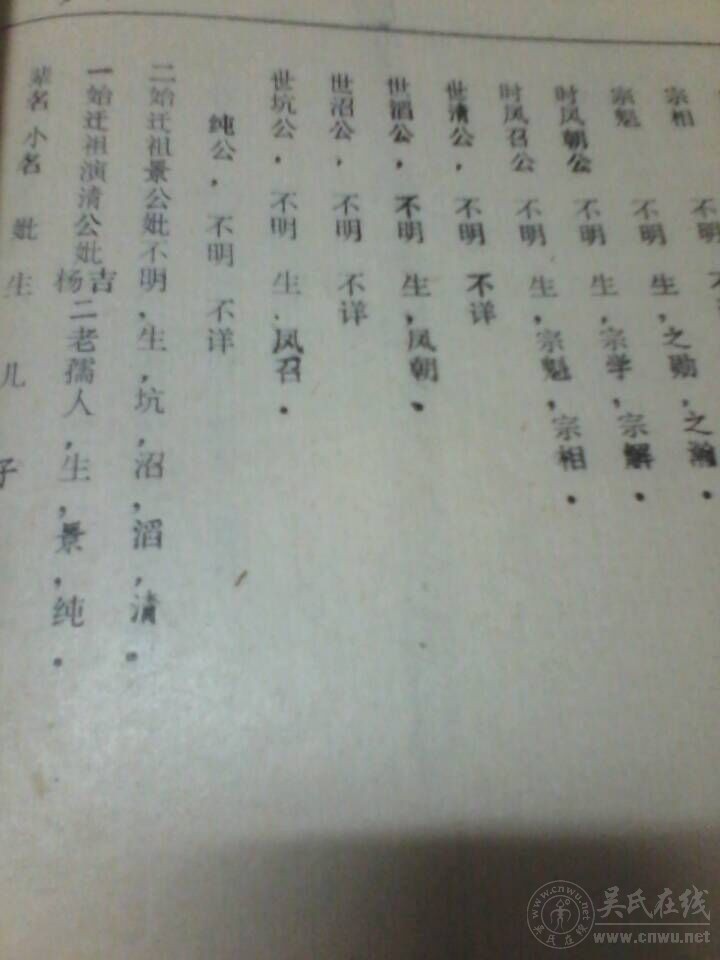 辈名 小名 妣 生 儿 子
一始迁祖演清公妣杨吉二老孺人,生,景,纯.
二始迁祖景公妣不明,生,坑,沼,滔,清.
纯公, 不明 不详
世坑公, 不明 生.凤召.
世沼公, 不明 不详
世滔公, 不明 生,凤朝.
世清公, 不明 不详
时凤召公 不明 生,宗魁,宗相.
时凤朝公 不明 生,宗学,宗解.
宗魁 不明 生,之勋,之瀚.
宗相 不明
不
吴氏在线
www.cnwu.net